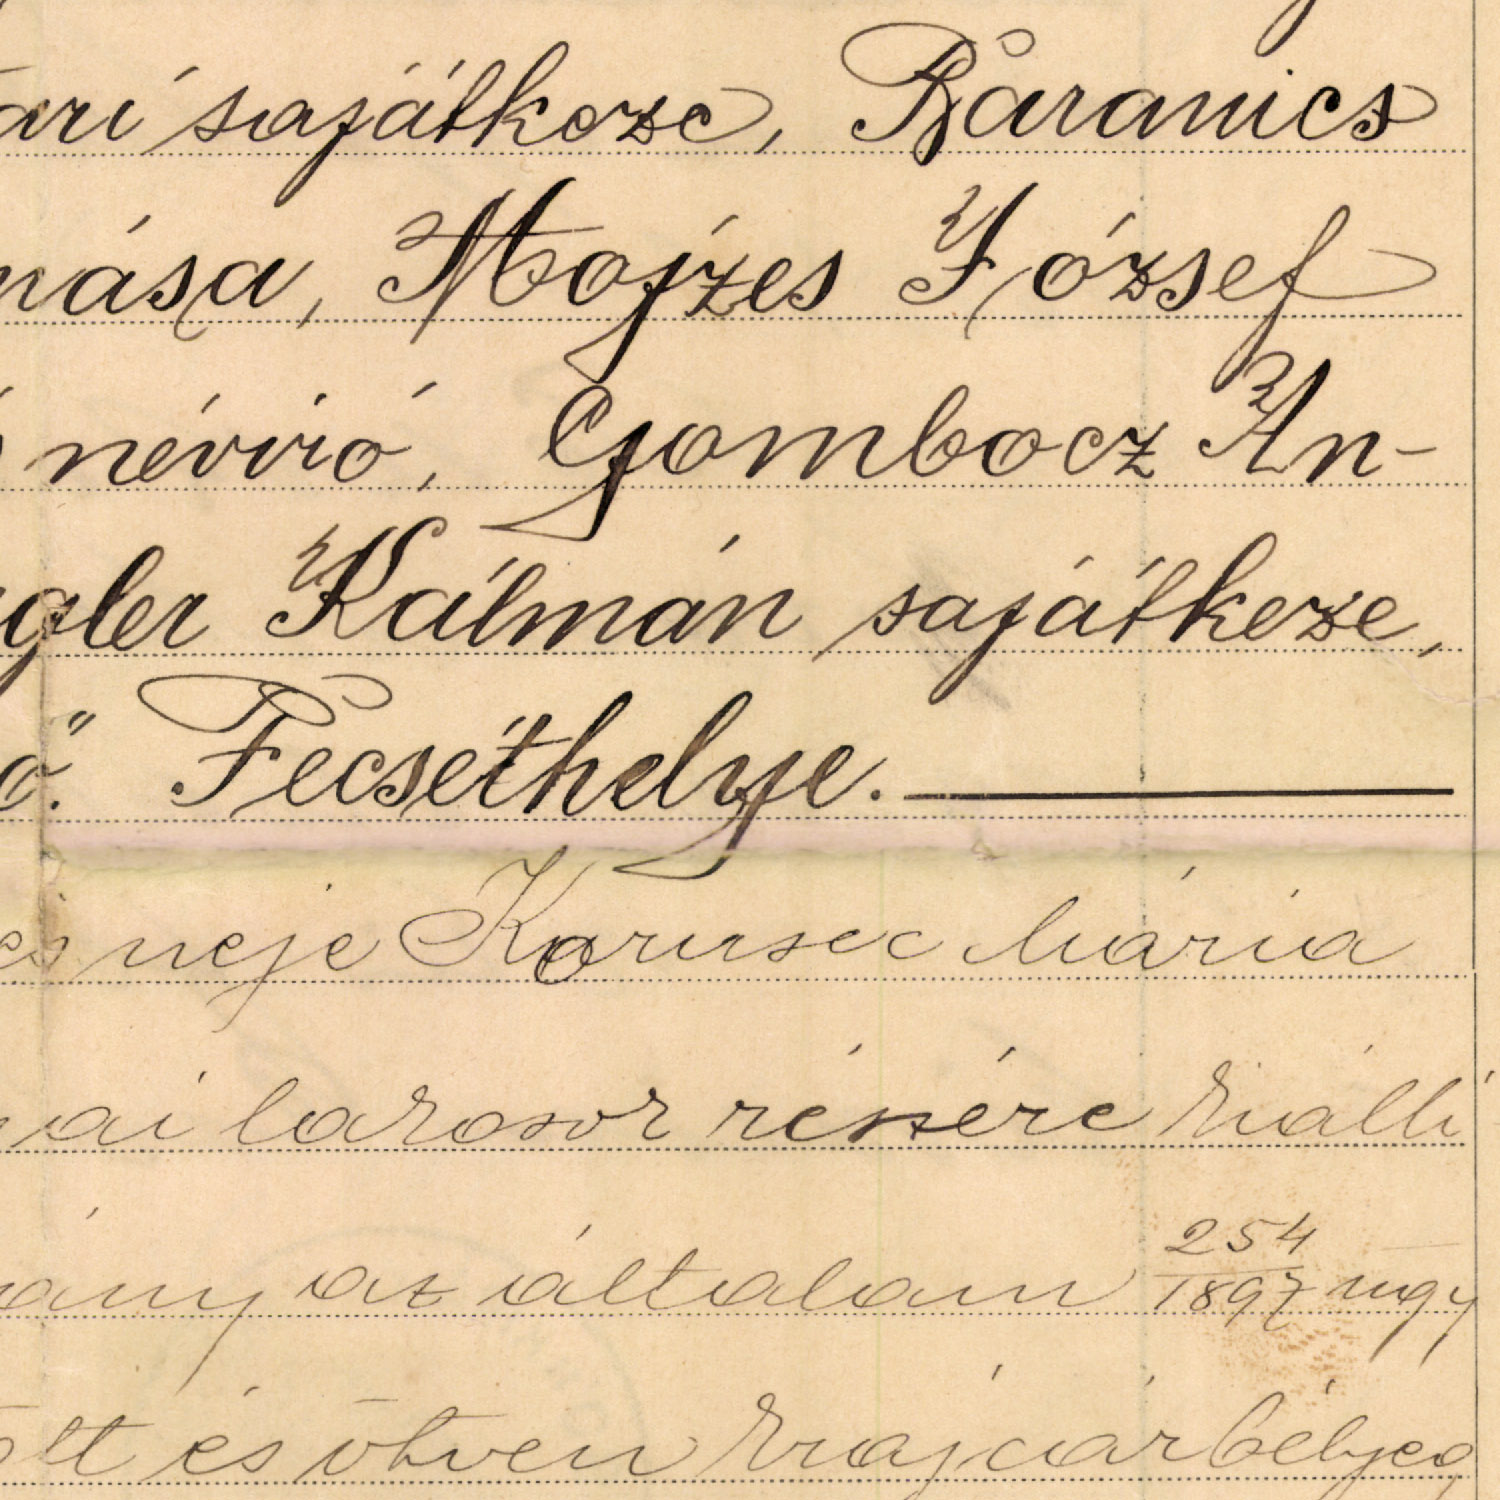 ári sajátkeze, Baranics
mása, Mojzes József
névíró, Gombocz An-
gler Kálmán sajátkeze,
ő." Pecséthelye.
és neje Korusec Mária
ai lakosok részére kiállí
ány az általam 254/1897 ügy
ölt és ötven krajcár bélyeg